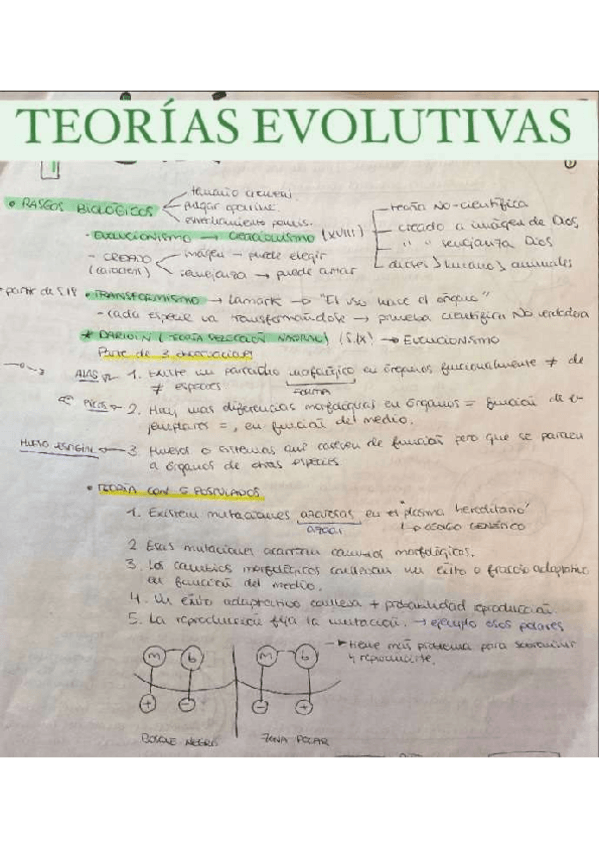 TEORÍAS EVOLUTIVAS
①
• RASGOS BIOLÓGICOS
tamaño craneal
pulgar oponible
- EVOLUCIONISMO → CREACIONISMO (XVIII)
teoría NO-científica
creado a imágen de Dios
" " semejanza Dios
dioses } humano } animales
- CREADO
imagen → puede elegir
semejanza → puede actuar
• TRANSFORMISMO → Lamark → "El uso hace el órgano"
- cada especie va transformándose → prueba científica NO verdadera
* DARWIN (TEORÍA SELECCIÓN NATURAL) (S.IX) → EVOLUCIONISMO
Parte de 3 observaciones
ALAS 1. Existe un parecido morfológico en órganos funcionalmente ≠ de
≠ especies.
FORMA
PICOS → 2. Hay más diferencias morfológicas en órganos = función de e-
jemplares =, en función del medio.
3. Huesos o sistemas que carecen de función pero que se parecen
a órganos de otras especies
• TEORÍA CON 5 POSTULADOS
1. Existen mutaciones azarosas en el "plasma hereditario"
azar
CÓDIGO GENÉTICO
2 Esas mutaciones acarrean cambios morfológicos.
3. Los cambios morfológicos conllevan un éxito o fracaso adaptativo
en función del medio.
4. Un éxito adaptativo conlleva + probabilidad reproducción
5. La reproducción fija la mutación. → ejemplo osos polares
m b m b
→ tiene más problema para sobrevivir
y reproducirse.
+ - - +
BOSQUE NEGRO ZONA POLAR